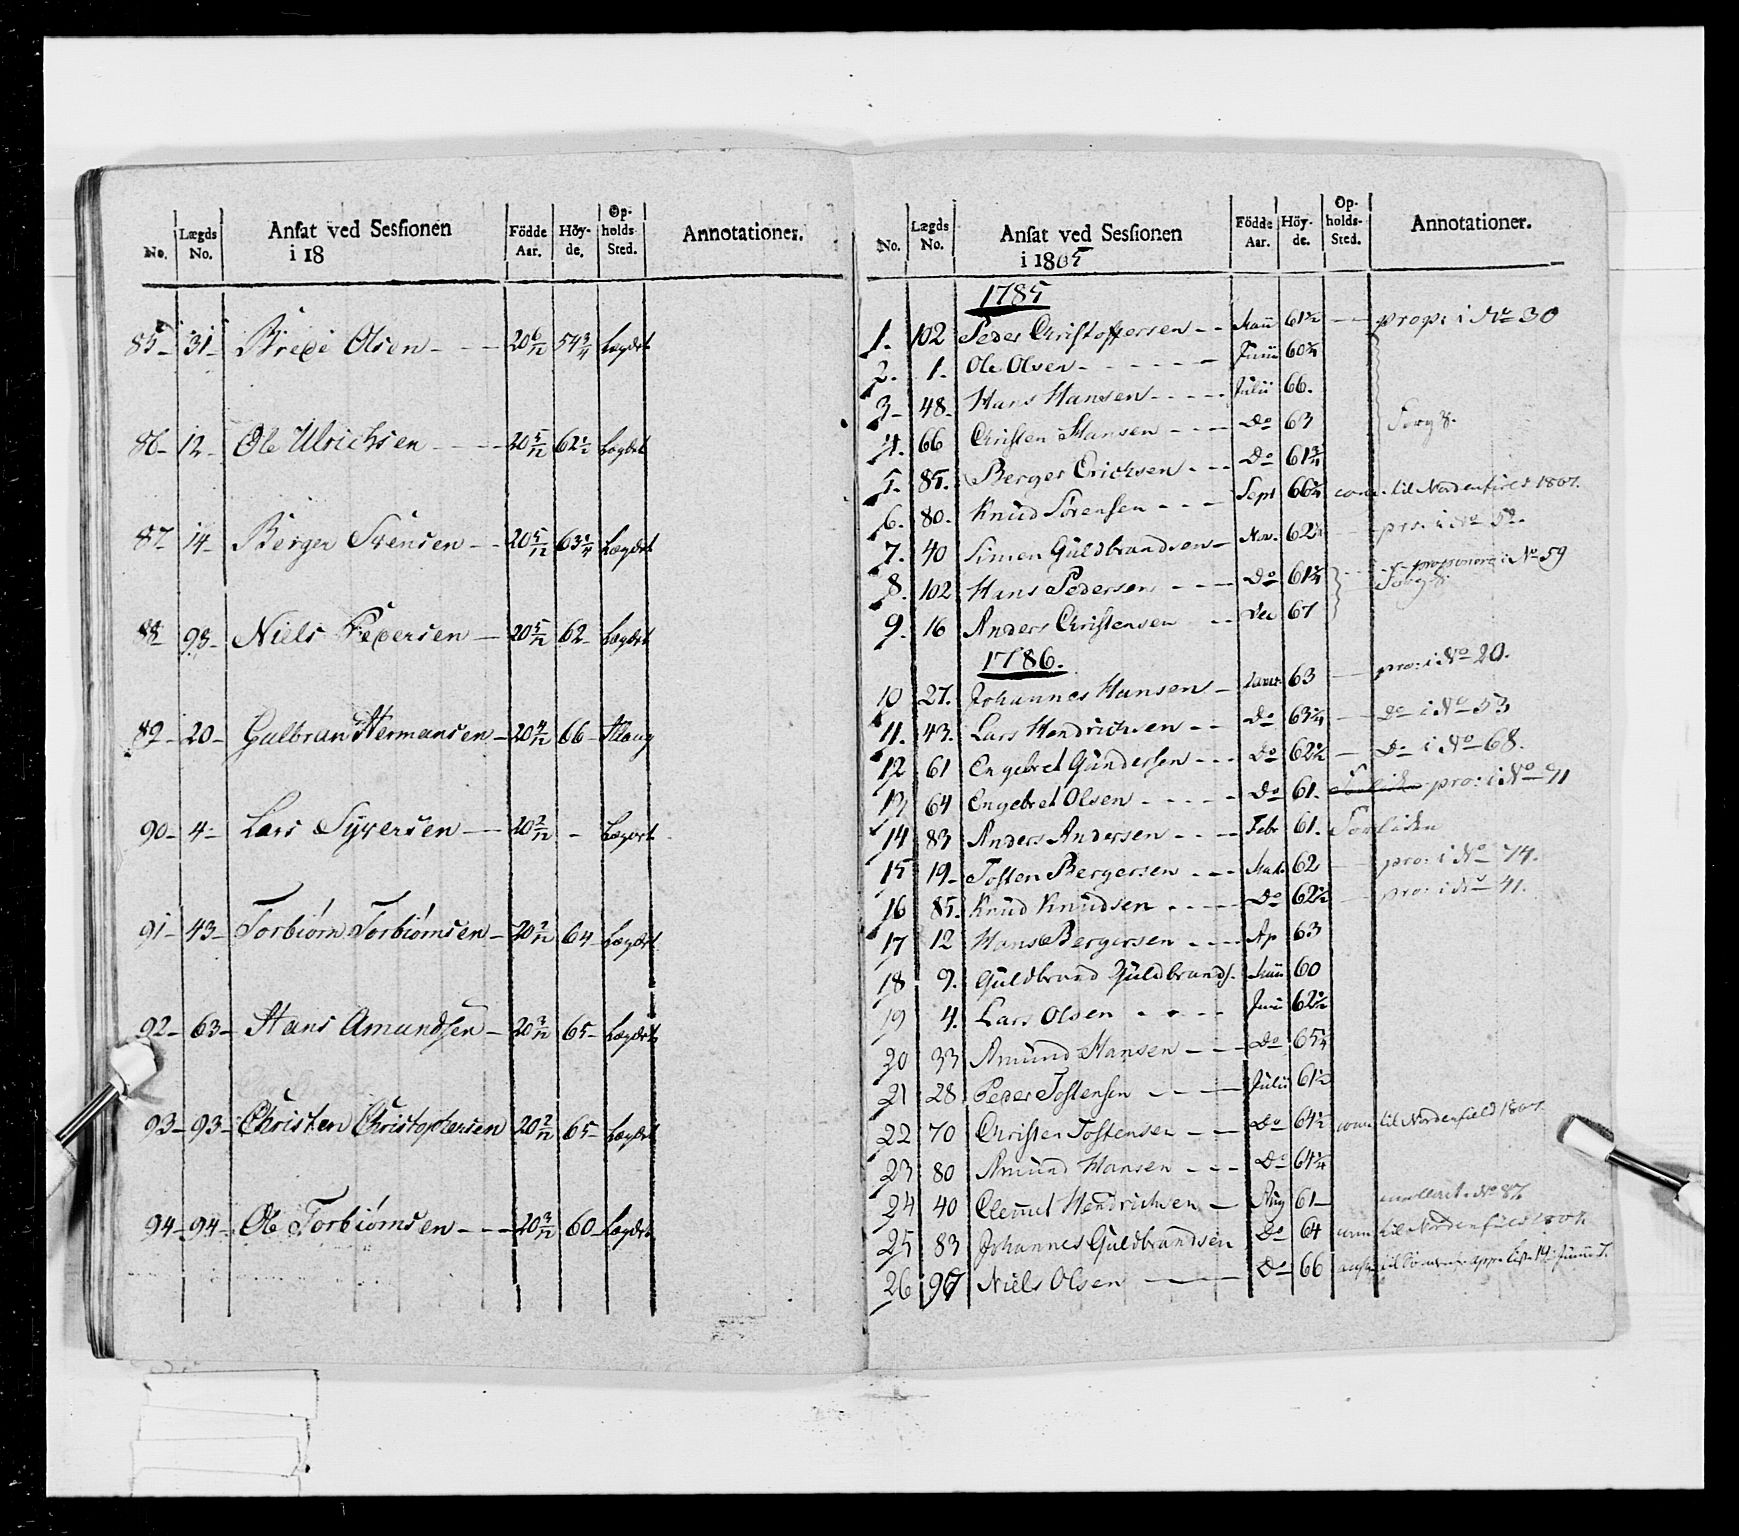 No. Lægds No. Ansat ved Sessionen i 18 Födde Aar. Höy-de. Op-holds-Sted. Annotationer.
85 31 Olsen 20 6/12 54 3/4 Lægdet
86 12 Ole Ulrichsen 20 5/12 62 1/2 Lægdet
87 14 Berger Svensen 20 5/12 63 1/4 Lægdet
88 98 Niels Pedersen 20 5/12 62 Lægdet
89 20 Gulbran Hermansen 20 4/12 66
90 4 Lars Syversen 20 2/12 - Lægdet
91 43 Torbiörn Torbiörnsen 20 2/12 64 Lægdet
92 63 Hans Amundsen 20 3/12 65 Lægdet
93 93 Christen Christophersen 20 2/12 65 Lægdet
94 94 Ole Torbiörnsen 20 3/12 60 Lægdet
No. Lægds No. Ansat ved Sessionen i 1805 Födde Aar. Höy-de. Op-holds-Sted. Annotationer.
1785
1. 102 Peder Christoffersen Maii 61 1/2 prop: i No 30
2. 1. Ole Olsen Junii 60 3/4
3 48 Hans Hansen Julii 66.
4. 66 Christen Hansen Do 63
5. 85. Berger Erichsen Do 61 3/4
6. 80. Knud Sörensen Sept 66 3/4 til Nordenfields 1807.
7. 40 Simen Guldbrandsen Nov. 62 pro: i No 52.
8. 102 Hans Pedersen Do 61 3/4 i No 59
9. 16 Anders Christensen Dec 67
1786.
10 27. Johannes Hansen Januar 63 pro: i No 20.
11. 43. Lars Hendrichsen Do 63 3/4 Do i No 53
12 61 Engebret Gundersen Do 62 1/2 Do i No 68.
13 64 Engebret Olsen Do 61. pro: i No 71
14 83 Anders Andersen Febr 61.
15 19 Tosten Bergersen Mart. 62 pro: i No 74.
16 85. Knud Knudsen Do 62 1/2 pro: i No 41.
17 12 Hans Bergersen Ap 63
18 9. Guldbrand Guldbrands. Maii 60
19 4. Lars Olsen Junii 62 1/2
20 33 Amund Hansen Do 65 1/4
21 28 Peder Tostensen Julii 61 1/2
22 70 Christen Tostensen Do 64 1/2 til Nordenfield 1807.
23 80 Amund Hansen Do 64 1/4
24 40 Clemet Hendrichsen Aug 61 No 87
25 83 Johannes Guldbrandsen Do 64 til Nordenfields 1807
26 96 Niels Olsen Do 66